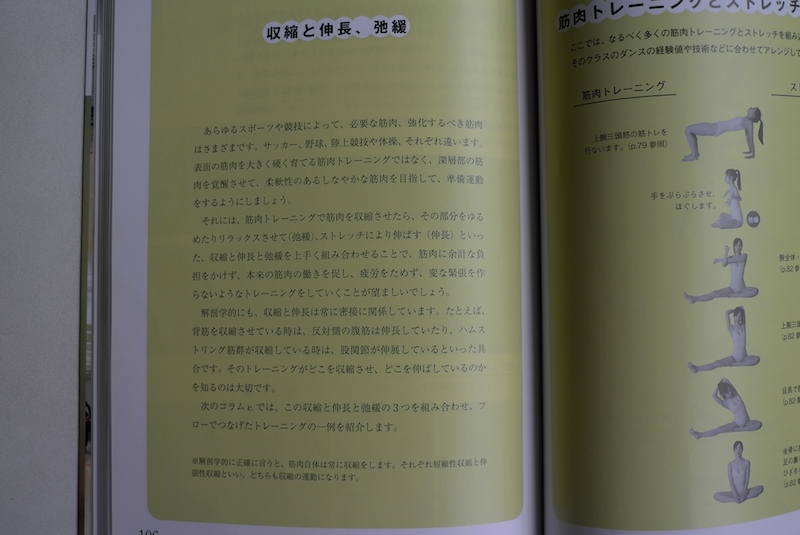 収縮と伸長、弛緩
あらゆるスポーツや競技によって、必要な筋肉、強化するべき筋肉
はさまざまです。サッカー、野球、陸上競技や体操、それぞれ違います。
表面の筋肉を大きく硬く育てる筋肉トレーニングではなく、深層部の筋
肉を覚醒させて、柔軟性のあるしなやかな筋肉を目指して、準備運動
をするようにしましょう。
それには、筋肉トレーニングで筋肉を収縮させたら、その部分をゆる
めたりリラックスさせて(弛緩)、ストレッチにより伸ばす(伸長)といっ
た、収縮と伸長と弛緩を上手く組み合わせることで、筋肉に余計な負
担をかけず、本来の筋肉の働きを促し、疲労をためず、変な緊張を作
らないようなトレーニングをしていくことが望ましいでしょう。
解剖学的にも、収縮と伸長は常に密接に関係しています。たとえば、
背筋を収縮させている時は、反対側の腹筋は伸長していたり、ハムス
トリング筋群が収縮している時は、股関節が伸展しているといった具
合です。そのトレーニングがどこを収縮させ、どこを伸ばしているのか
を知るのは大切です。
次のコラムe.では、この収縮と伸長と弛緩の3つを組み合わせ、フ
ローでつなげたトレーニングの一例を紹介します。
※解剖学的に正確に言うと、筋肉自体は常に収縮をします。それぞれ短縮性収縮と伸
張性収縮といい、どちらも収縮の運動になります。
106
筋肉トレーニングとストレッチ
ここでは、なるべく多くの筋肉トレーニングとストレッチを組み
そのクラスのダンスの経験値や技術などに合わせてアレンジして
筋肉トレーニング
ス
上腕三頭筋の筋トレを
行ないます。(p.79 参照)
手をぶらぶらさせ、
ほぐします。
弛緩
腕全体・
(p.82 参
上腕三頭
(p.82 参
延長で
(p.82 参
坐骨に
足の裏
ひざを
(p.82